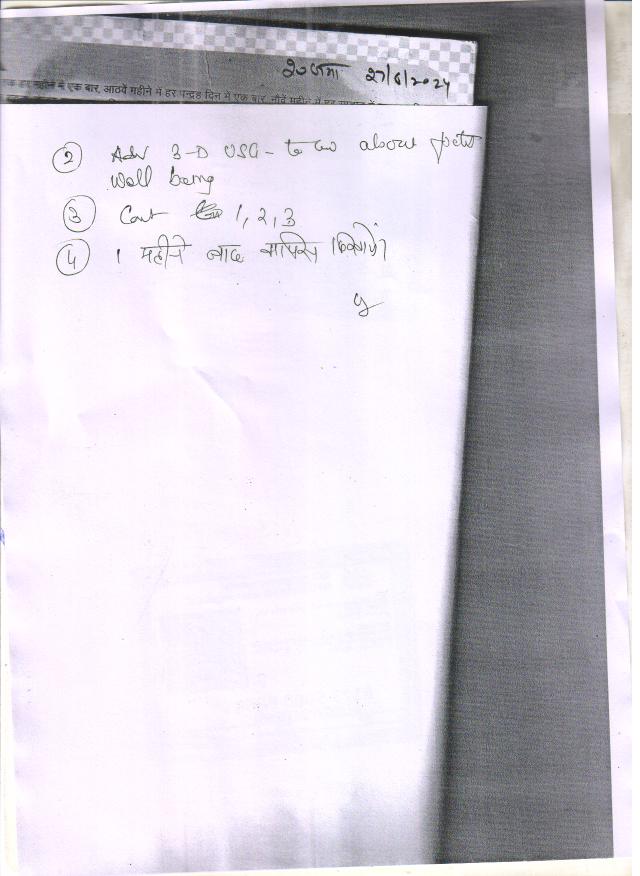 27/6/2024
में एक बार, आठवें महीने में हर पन्द्रह दिन में एक बार, नौवें महीने में हर
② Adv 3-D USG - to about
Well being
③ Cont 1, 2, 3
④ 1 महीने बाद वापिस दिखायें